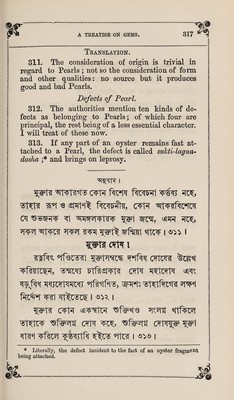 A TREATISE ON GEMS. 317
TRANSLATION.
311. The consideration of origin is trivial in
regard to Pearls; not so the consideration of form
and other qualities: no source but it produces
good and bad Pearls.
Defects of Pearl.
312. The authorities mention ten kinds of de-
fects as belonging to Pearls; of which four are
principal, the rest being of a less essential character.
I will treat of these now.
313. If any part of an oyster remains fast at-
tached to a Pearl, the defect is called sukti-lagna-
dosha ;* and brings on leprosy.
অনুবাদ।
মুক্তার আকারগত কোন বিশেষ বিবেচনা কর্তব্য নহে,
তাহার রূপ ও প্রমাণই বিবেচনীয়, কোন আকরবিশেষে
যে শুভজনক বা অমঙ্গলকারক মুক্তা জন্মে, এমন নহে,
সকল আকরে সকল রকম মুক্তাই জন্মিয়া থাকে। ৩১১।
মুক্তার দোষ।
রত্নবিৎ পণ্ডিতেরা মুক্তাসম্বন্ধে দশবিধ দোষের উল্লেখ
করিয়াছেন, তন্মধ্যে চারিপ্রকার দোষ মহাদোষ এবং
ষড়্‌বিধ মধ্যদোষমধ্যে পরিগণিত, ক্রমশঃ তাহাদিগের লক্ষণ
নির্দ্দেশ করা যাইতেছে। ৩১২।
মুক্তার কোন একস্থানে শুক্তিখণ্ড সংলগ্ন থাকিলে
তাহাকে শুক্তিলগ্ন দোষ কহে, শুক্তিলগ্ন দোষযুক্ত মুক্তা
ধারণ করিলে কুষ্ঠব্যাধি হইতে পারে। ৩১৩।
* Literally, the defect incident to the fact of an oyster fragment
being attached.